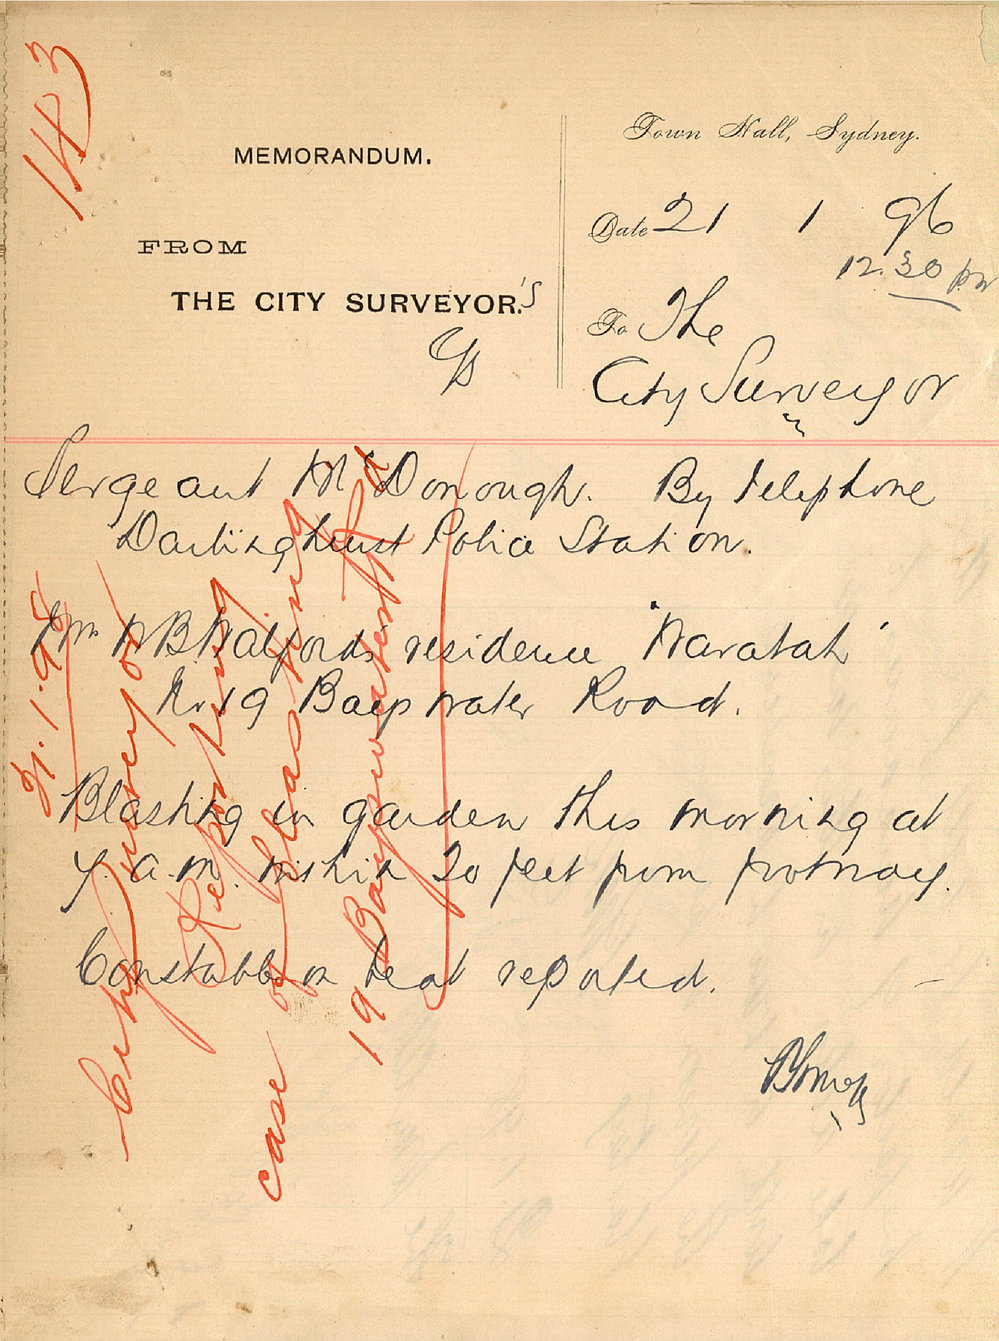 143
MEMORANDUM.
FROM
THE CITY SURVEYOR.'S
Town Hall, Sydney.
Date 21 1 96
12.30 pm
To The
City Surveyor
Sergeant McDonough. By telephone
Darlinghurst Police Station.
Mr W B Walford's residence "Waratah"
No 19 Bayswater Road.
Blasting in garden this morning at
7. a.m. within 20 feet from footway.
Constable on beat reported.
21.1.96
City Surveyor
Reporting
case of blasting
19 Bayswater Rd